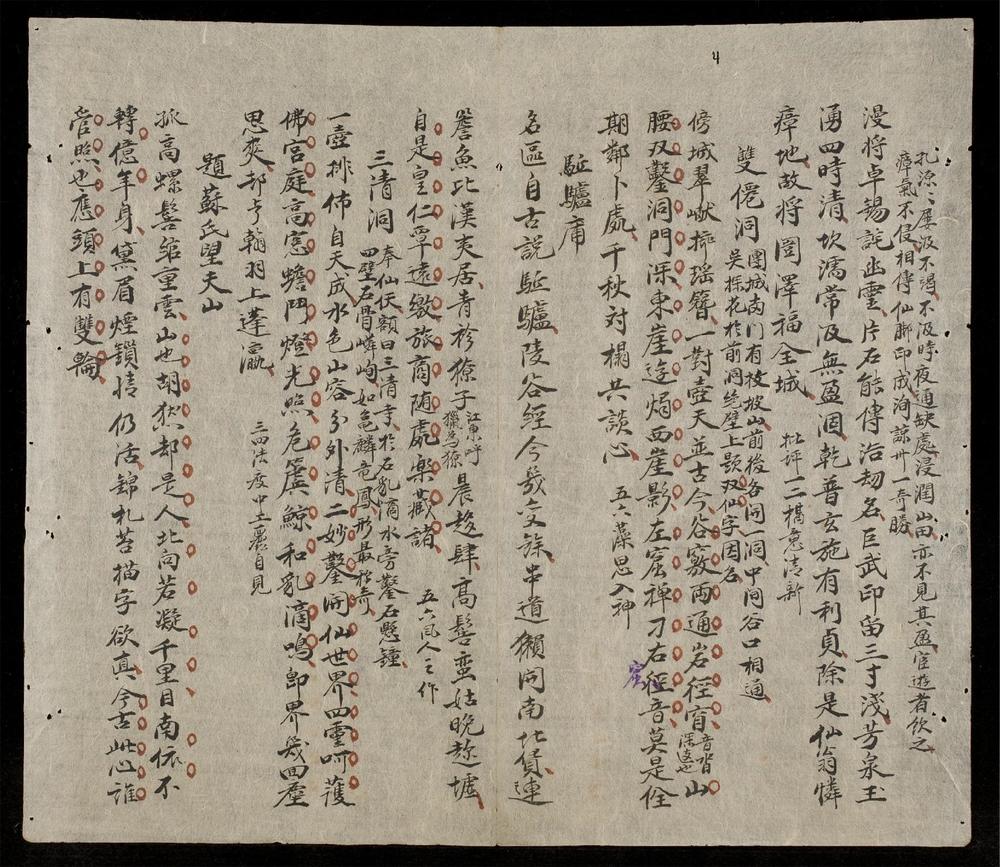 4
孔源〻屡汲不渴不汲時夜通缺處浸潤山田亦不見其盈宦遊者飲之
瘴氣不侵相傳仙腳印成洵諒州一奇勝
漫將卓錫詫幽雲片石能傳浩劫名巨武印留三寸淺芳泉玉
湧四時清坎濡常汲無盈涸乾普玄施有利貞除是仙翁憐
瘴地故將圂澤福全城
批評一二搆意清新
雙僊洞
團城南门有枚坡山前後各同一洞中间谷口相通
吳探花於前洞绝壁上题双仙字因名
傍城翠巘擲瑤簪一對壺天並古今谷竅両通岩徑窅
音咨深遠也
山
腰双鑿洞門深東崖迩焗西崖影左窟禅刀右徑音莫是佺
窟
期鄰卜處千秋対榻共談心
五六藻思入神
駈驢庸
名區自古説駈驢陵谷經今幾变餘串道獺同南北貨連
詧魚比漢夷居青衿獠子
江東呼獵為獠
晨趍肆髙髻蛮姑晚趂墟
自是皇仁覃遠徼旅商随處楽藏諸
五六風人之作
三清洞
奉仙伏额曰三清寺於石乳滴水旁鑿石懸鐘
四壁石骨嶙峋如亀麟竜鳳形最极奇
一壺排佈自天成水色山容分外清二妙鑿開仙世界四靈呵護
佛宫庭高窓蟾鬥燈光照危簴鯨和乳滴鳴郎界幾四塵
思爽却亐翰羽上蓬瀛
三四法度中土裹自見
題蘇氏望夫山
孤高螺髻箒重雲山也胡愁却是人北向若凝千里目南依不
轉億年身黛眉煙鎖情仍活錦札苔描字欲真今古此心誰
管照也應頭上有雙輪